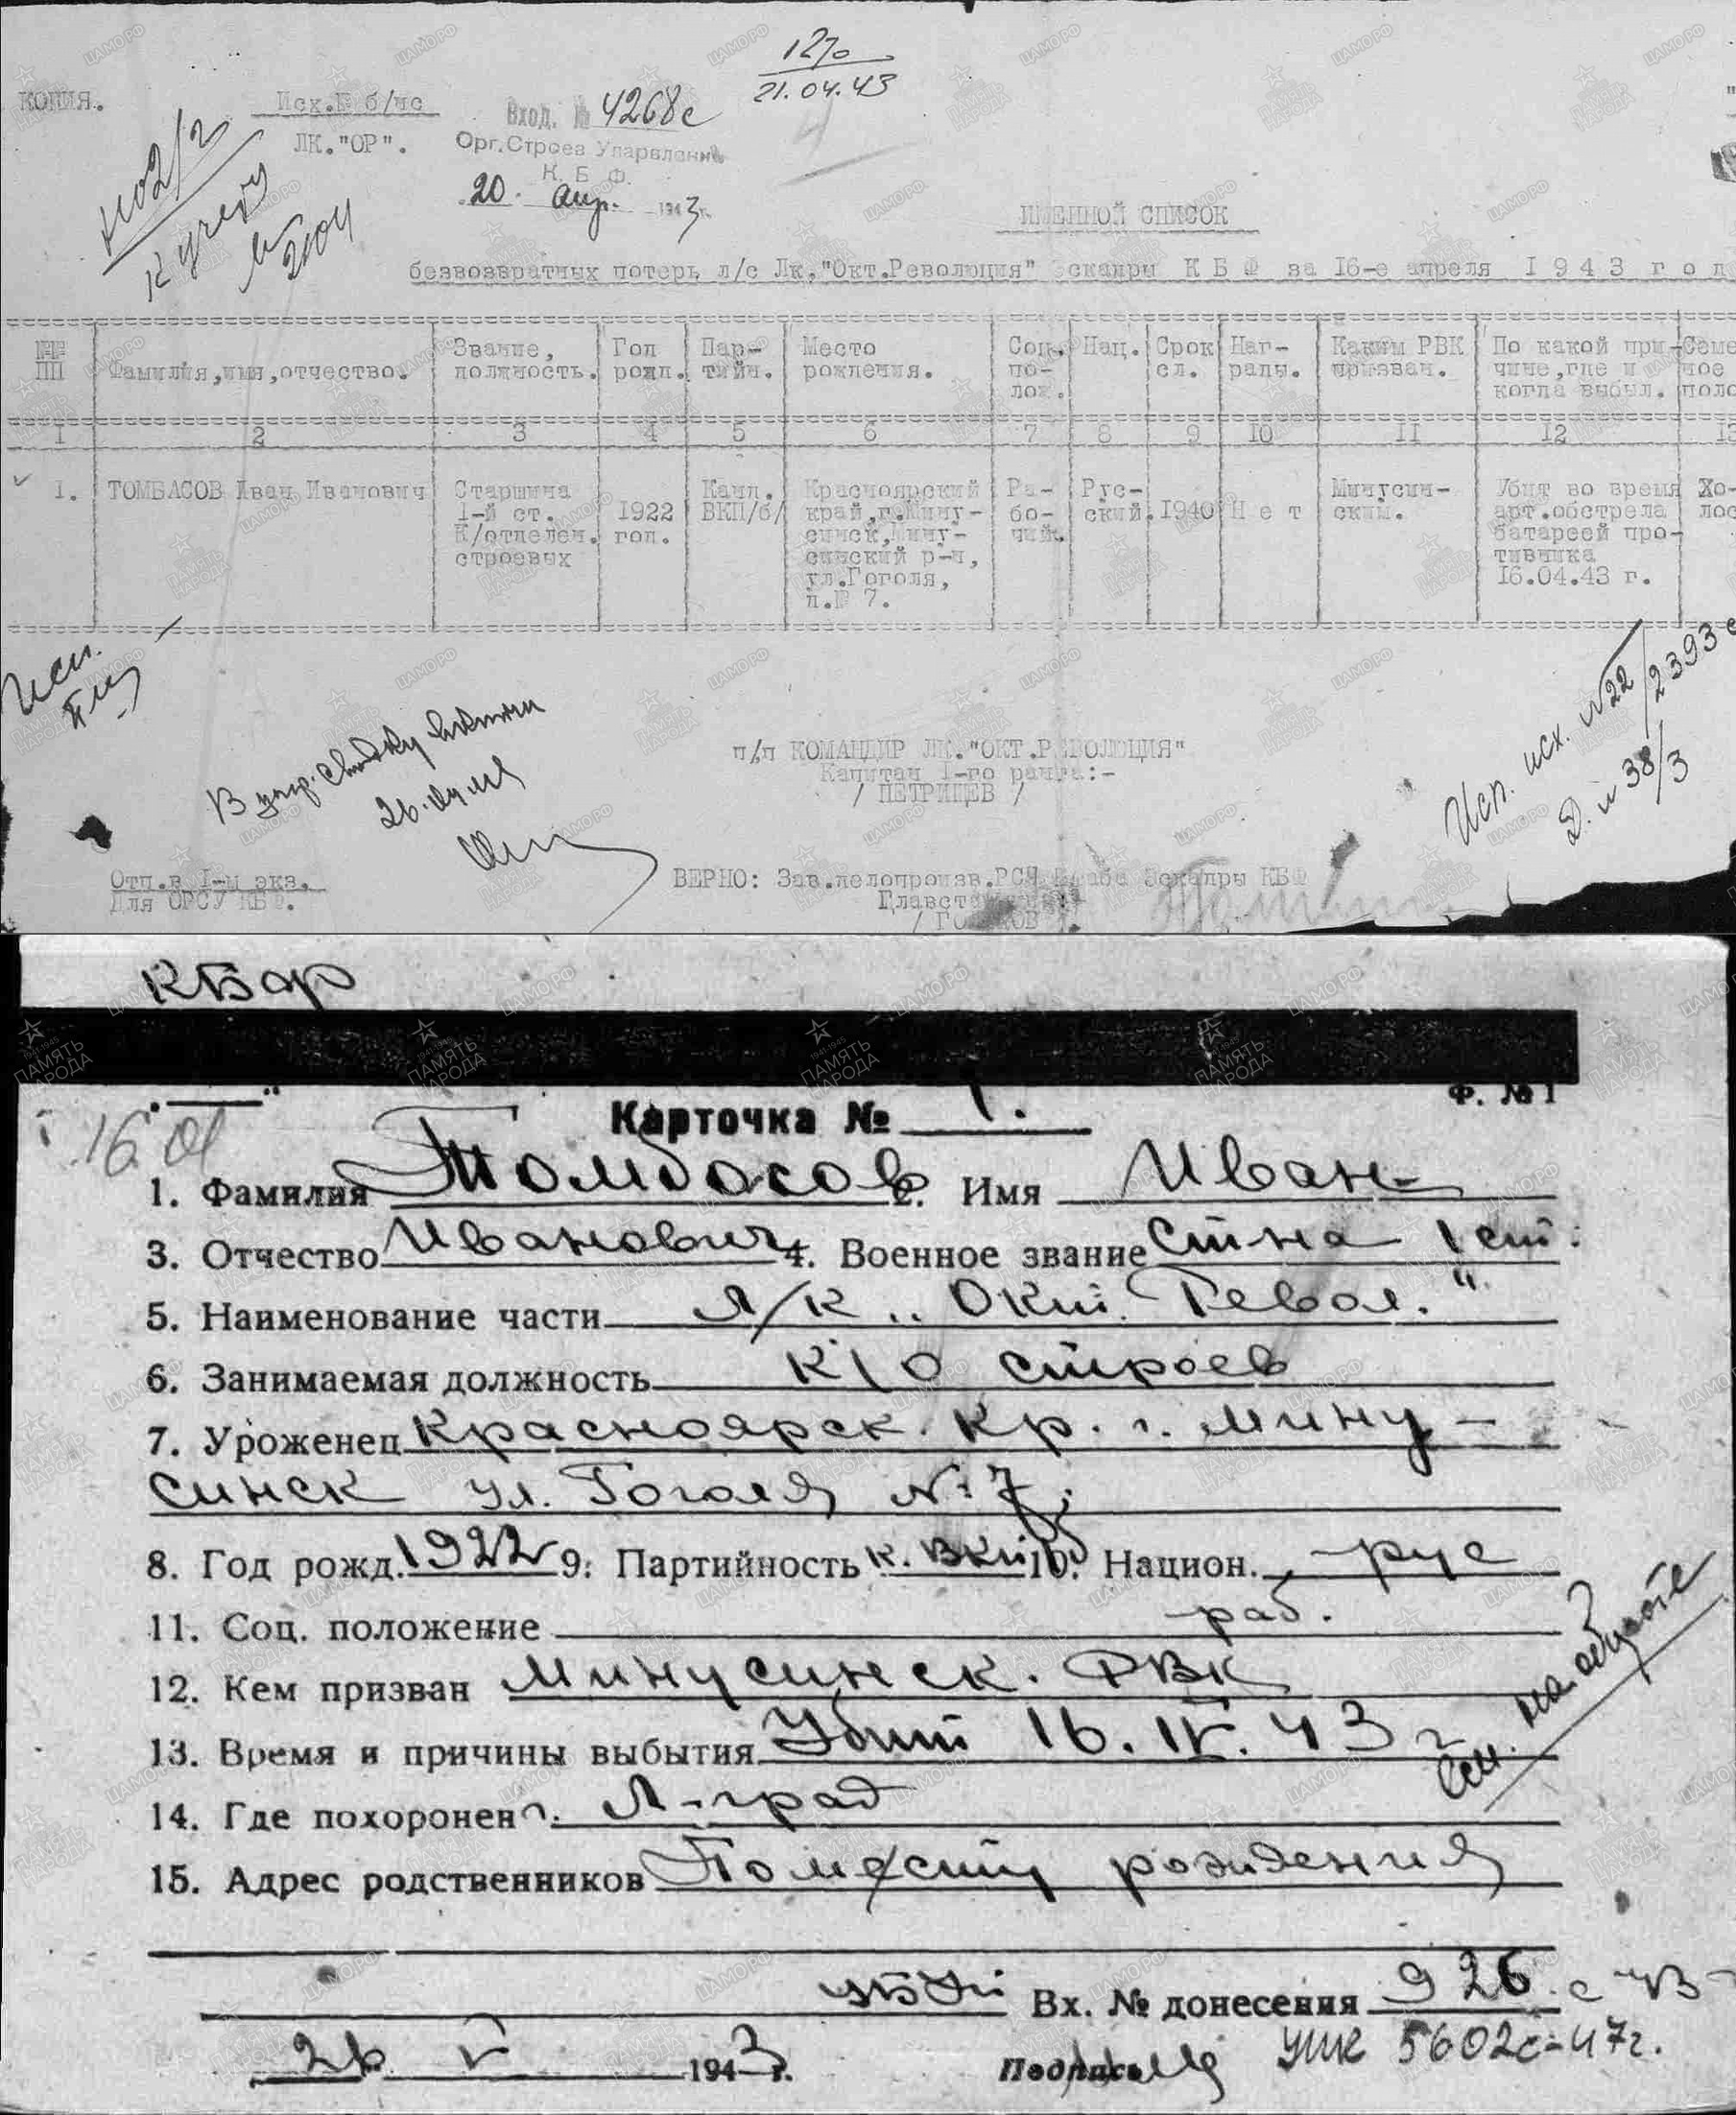 1270
21.04.43
КОПИЯ.
Исх.№ б/нс
ЛК."ОР".
Вход. № 4268с
Орг.Строев Управление
К. Б. Ф.
20. апр. 1943г.
к учету
ИМЕННОЙ СПИСОК
безвозвратных потерь л/с Лк."Окт.Революция" Эскадры К Б Ф за 16-е апреля 1 9 4 3 г о д
№№ ПП
Фамилия,имя,отчество.
Звание, должность.
Год рожд.
Пар- тийн.
Место рождения.
Соц. по- лож.
Нац.
Срок сл.
Наг- рады.
Каким РВК призван.
По какой при- чине,где и когда выбыл.
Семе ное поло
1 2 3 4 5 6 7 8 9 10 11 12 13
1.
ТОМБАСОВ Иван Иванович
Старшина 1-й ст. К/отделен. строевых
1922 год.
Канд. ВКП/б/
Красноярский край,г.Мину- синск,Мину- синский р-н, ул.Гоголя, д.№ 7.
Ра- бо- чий.
Рус- ский.
1940
Н е т
Минусин- ским.
Убит во время арт.обстрела батареей про- тивника 16.04.43 г.
Хо- лос
п/п КОМАНДИР ЛК."ОКТ.РЕВОЛЮЦИЯ"
Капитан 1-го ранга:-
/ ПЕТРИЩЕВ /
Исп. исх. №22/2393с
Д. № 38/3
Отп.в 1-м экз.
Для ОРСУ КБФ.
ВЕРНО: Зав.делопроизв.РСЧ Штаба Эскадры КБФ
КБФ
Ф. № 1
Карточка № 1.
16.04
1. Фамилия Томбасов 2. Имя Иван
3. Отчество Иванович 4. Военное звание ст-на 1 ст.
5. Наименование части л/к „Окт.Револ."
6. Занимаемая должность к/о строев
7. Уроженец Красноярск. кр. г. Мину-
синск ул. Гоголя № 7.
8. Год рожд. 1922 9. Партийность к. ВКП/б 10. Национ. рус
11. Соц. положение раб.
12. Кем призван Минусинск. РВК
13. Время и причины выбытия Убит 16.IV.43 г
см. на обороте
14. Где похоронен г. Л-град
15. Адрес родственников По месту рождения
Вх. № донесения 926с-43
26 V 1943 г. Подпись
УПК 5602с-47г.